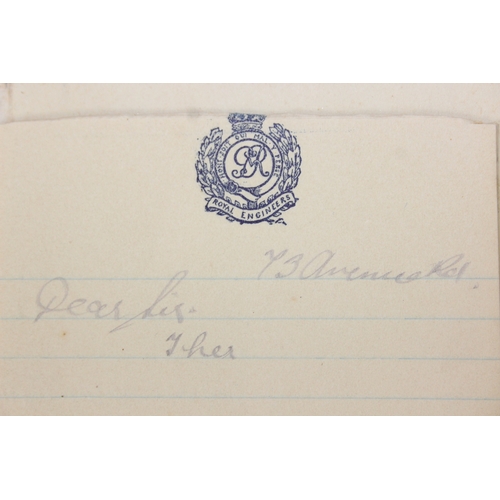 HONI SOIT QUI MAL Y PENSE
ROYAL ENGINEERS
73 Avenue Rd.
Dear Sir.
I her